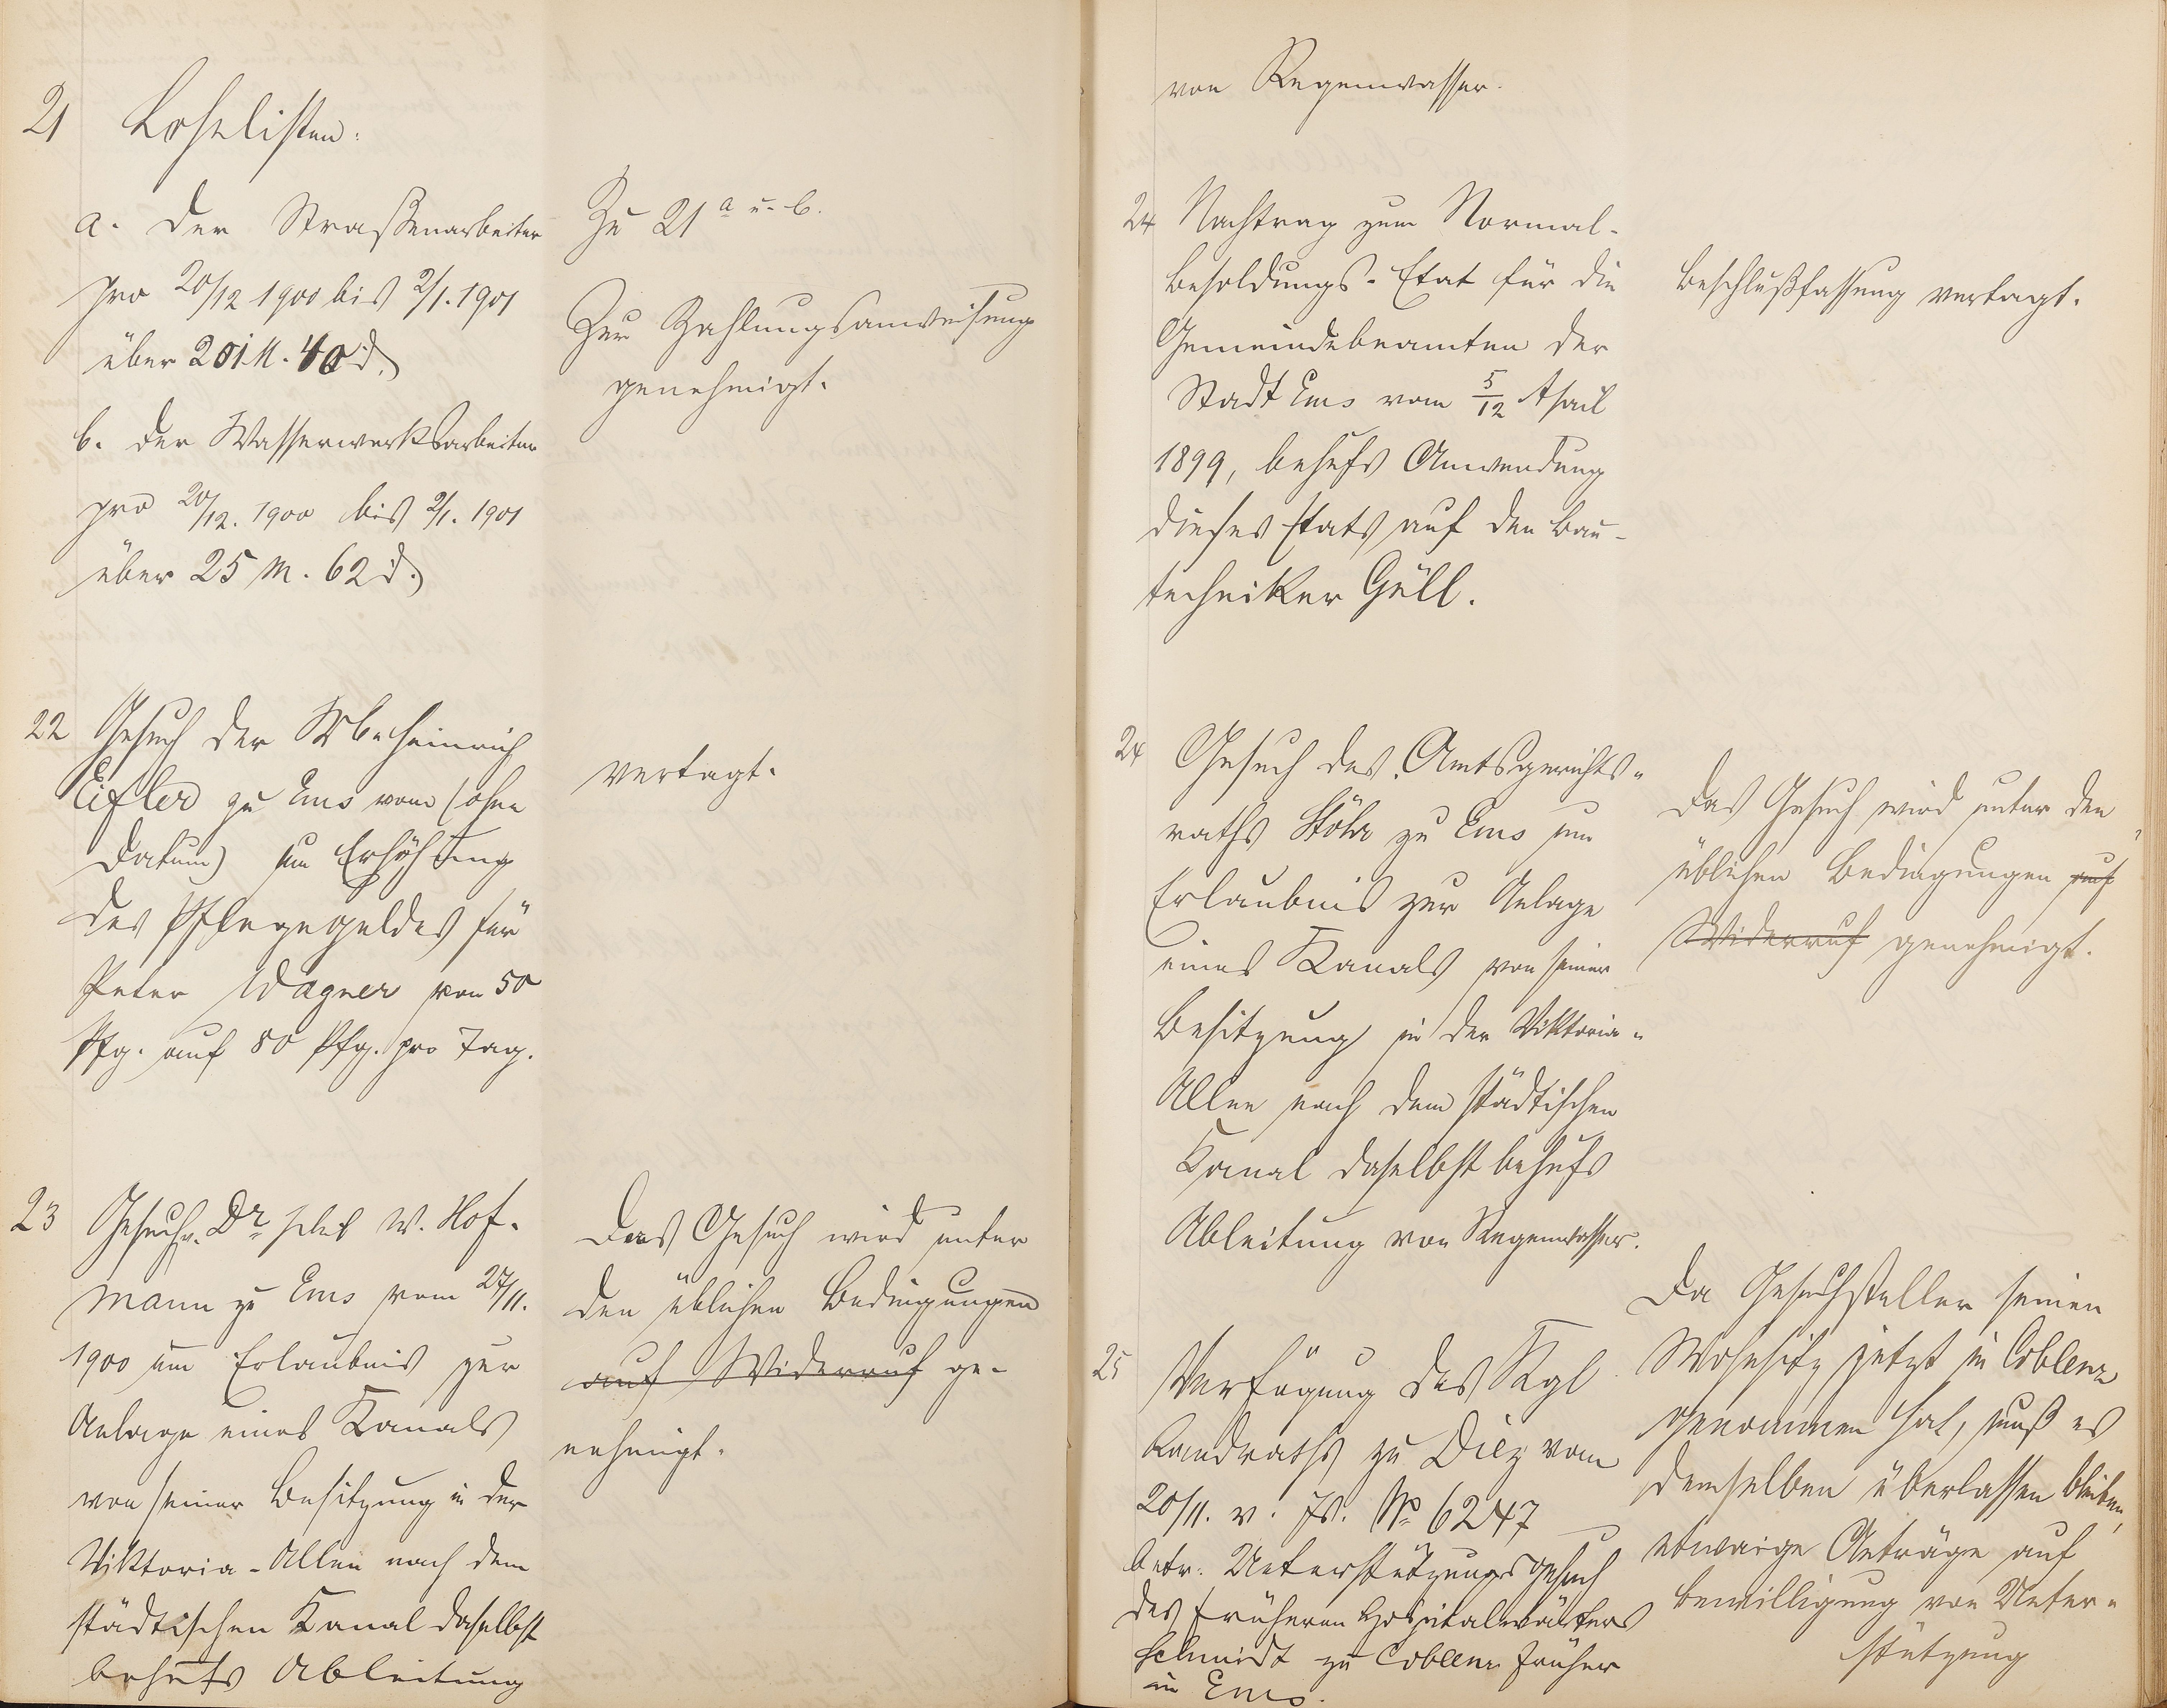 21 Lohnlisten.
a. der Straßenarbeiter
pro 20/12 1900 bis 2/1. 1901
über 201 M. 40 d.
b. der Wasserwerksarbeiter
pro 20/12. 1900 bis 2/1. 1901
über 25 M. 62 d.
Zu 21 a u. b.
Zur Zahlungsanweisung
genehmigt.
22 Gesuch der Wwe Heinrich
Eifler zu Ems vom (ohne
Datum) um Erhöhung
des Pflegegeldes für
Peter Wagner von 50
Pfg. auf 80 Pfg. pro Tag.
vertagt.
23 Gesuch v. Dr W. Hof-
mann zu Ems vom 27/11.
1900 um Erlaubnis zur
Anlage eines Kanals
von seiner Besitzung in der
Viktoria-Allee nach dem
städtischen Kanal daselbst
behufs Ableitung
Das Gesuch wird unter
den üblichen Bedingungen
auf Widerruf ge-
nehmigt.
von Regenwasser.
24 Nachtrag zum Normal-
besoldungs-Etat für die
Gemeindebeamten der
Stadt Ems vom 5/12 April
1899, behufs Anwendung
dieses Etats auf den Bau-
techniker Güll.
Beschlußfassung vertagt.
24 Gesuch des Amtsgerichts-
raths Stöhr zu Ems um
Erlaubnis zur Anlage
eines Kanals von seiner
Besitzung in der Viktoria-
Allee nach dem städtischen
Kanal daselbst behufs
Ableitung von Regenwasser.
Das Gesuch wird unter den
üblichen Bedingungen auf
Widerruf genehmigt.
25 Verfügung des Kgl
Landraths zu Diez vom
20/11. v. Js. No 6247
betr. Unterstützungsgesuch
des früheren Hospitalwärters
Schmidt zu Coblenz früher
in Ems.
Da Gesuchsteller seinen
Wohnsitz jetzt in Coblenz
genommen hat, muß es
demselben überlassen bleiben,
etwaige Anträge auf
Bewilligung von Unter-
stützung